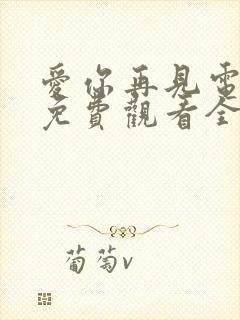 愛你再見電
免費觀看全
葡萄v